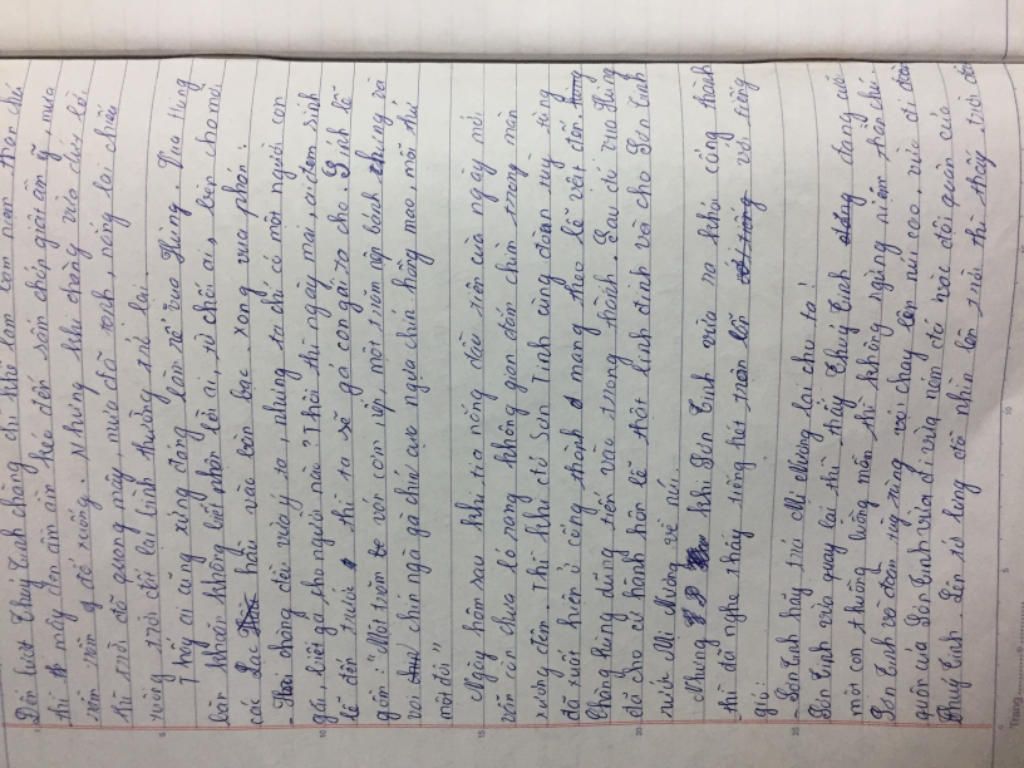 Đến lượt Thuỷ Tinh chàng chỉ khẽ lầm bầm niệm thần chú
thì mây đen ầm ầm kéo đến sấm chớp giật ầm ỹ, mưa
rồi đổ xuống. Nhưng khi chàng vừa dứt lời
thì trời đã quang mây, mưa đã tạnh, nắng lại chiếu
xuống trời đất lại bình thường trở lại.
Thấy ai cũng xứng đáng làm rể vua Hùng. Vua Hùng
băn khoăn không biết nhận lời ai, từ chối ai, bèn cho mời
các Lạc hầu vào bàn bạc. xong vua phán:
- Hai chàng đều vừa ý ta, nhưng ta chỉ có một người con
gái, biết gả cho người nào? Thôi thì ngày mai, ai đem sính
lễ đến trước thì ta sẽ gả con gái ta cho. Sính lễ
gồm: "Một trăm ván cơm nếp, một trăm nệp bánh chưng và
voi chín ngà gà chín cựa ngựa chín hồng mao, mỗi thứ
một đôi"
Ngày hôm sau khi tia nắng đầu tiên của ngày mới
vẫn còn chưa ló rạng không gian đắm chìm trong màn
sương đêm. Thì khi đó Sơn Tinh cùng đoàn tuỳ tùng
đã xuất hiện ở cổng thành mang theo lễ vật đến.
Chàng đứng tiến vào trong thành. Sau đó vua Hùng
đã cho cử hành hôn lễ thật linh đình và cho Sơn Tinh
rước Mị Nương về núi.
Nhưng khi Sơn Tinh vừa ra khỏi cổng thành
thì đã nghe thấy tiếng hét trộn lẫn với tiếng
gió:
- Sơn Tinh hãy trả Mị Nương lại cho ta!
Sơn Tinh vừa quay lại thì thấy Thuỷ Tinh đang cưỡi
một con thuồng luồng mồm thì không ngừng niệm thần chú.
Sơn Tinh và đoàn tuỳ tùng chạy lên núi cao. vừa đi
quân của Sơn Tinh vừa đi vừa ném đá hoặc đội quân của
Thuỷ Tinh. Lên tới lưng đồi nhìn lên trời thì thấy trời
Tháng